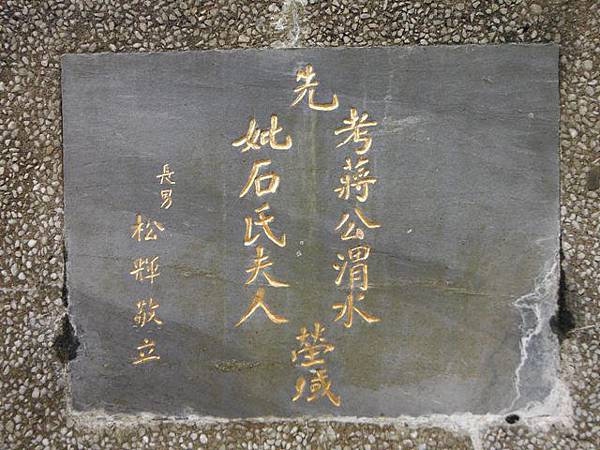 先
考蔣公渭水
妣石氏夫人
塋域
長男
松輝敬立